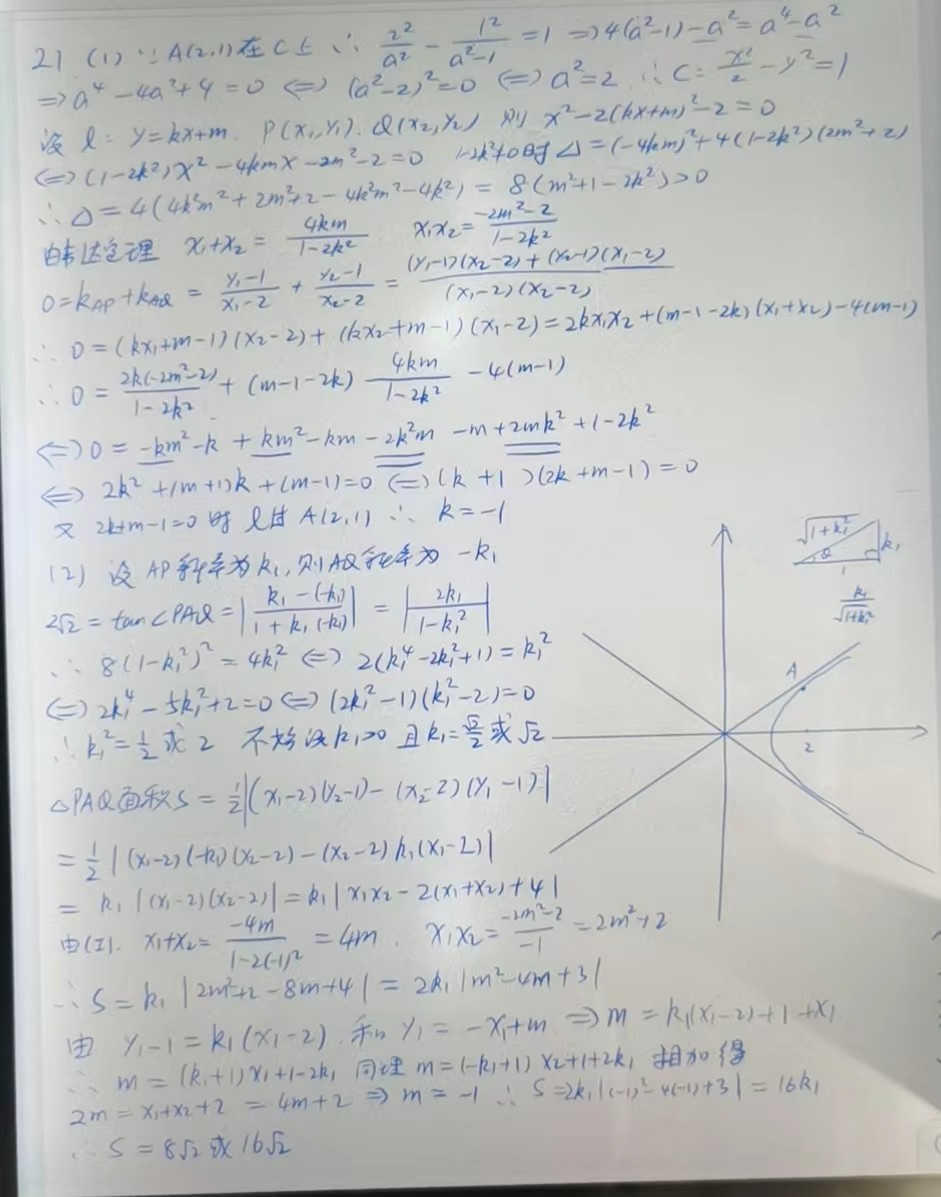 21 (1) ∵ A(2,1)在C上 ∴ 2²/a² - 1²/(a²-1) = 1 ⇒ 4(a²-1)-a² = a⁴-a²
⇒ a⁴-4a²+4=0 ⇔ (a²-2)²=0 ⇔ a²=2 ∴ C: x²/2 - y²=1
设 l: y=kx+m. P(x₁,y₁). Q(x₂,y₂) 则 x²-2(kx+m)²-2=0
⇔ (1-2k²)x²-4kmx-2m²-2=0 1-2k²≠0时 Δ=(-4km)²+4(1-2k²)(2m²+2)
∴ Δ=4(4k²m²+2m²+2-4k²m²-4k²) = 8(m²+1-2k²)>0
由韦达定理 x₁+x₂ = 4km/(1-2k²) x₁x₂ = (-2m²-2)/(1-2k²)
0=k_AP+k_AQ = (y₁-1)/(x₁-2) + (y₂-1)/(x₂-2) = ((y₁-1)(x₂-2)+(y₂-1)(x₁-2))/((x₁-2)(x₂-2))
∴ 0=(kx₁+m-1)(x₂-2)+(kx₂+m-1)(x₁-2)=2kx₁x₂+(m-1-2k)(x₁+x₂)-4(m-1)
∴ 0 = 2k(-2m²-2)/(1-2k²) + (m-1-2k) 4km/(1-2k²) - 4(m-1)
⇔ 0 = -km²-k+km²-km-2k²m-m+2mk²+1-2k²
⇔ 2k²+(m+1)k+(m-1)=0 ⇔ (k+1)(2k+m-1)=0
又 2k+m-1=0 时 l过A(2,1) ∴ k=-1
(2) 设AP斜率为k₁,则AQ斜率为 -k₁
2√2 = tan∠PAQ = |(k₁-(-k₁))/(1+k₁(-k₁))| = |2k₁/(1-k₁²)|
∴ 8(1-k₁²)²=4k₁² ⇔ 2(k₁⁴-2k₁²+1)=k₁²
⇔ 2k₁⁴-5k₁²+2=0 ⇔ (2k₁²-1)(k₁²-2)=0
∴ k₁²=1/2 或 2 不妨设k₁>0 且k₁=√2/2 或 √2
△PAQ面积S = 1/2|(x₁-2)(y₂-1)-(x₂-2)(y₁-1)|
= 1/2|(x₁-2)(-k₁)(x₂-2)-(x₂-2)k₁(x₁-2)|
= k₁|(x₁-2)(x₂-2)| = k₁|x₁x₂-2(x₁+x₂)+4|
由(I). x₁+x₂ = -4m/(1-2(-1)²) = 4m. x₁x₂ = (-2m²-2)/(-1) = 2m²+2
∴ S = k₁|2m²+2-8m+4| = 2k₁|m²-4m+3|
由 y₁-1=k₁(x₁-2) 和 y₁=-x₁+m ⇒ m=k₁(x₁-2)+1+x₁
∴ m=(k₁+1)x₁+1-2k₁ 同理 m=(-k₁+1)x₂+1+2k₁ 相加得
2m=x₁+x₂+2 = 4m+2 ⇒ m=-1 ∴ S=2k₁|(-1)²-4(-1)+3|=16k₁
∴ S=8√2 或 16√2
√(1+k₁²)
k₁
θ
1
k₁/√(1+k₁²)
A
2